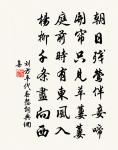 朝日殘鶯伴妾啼
開簾只見草萋萋
庭前時有東風入
楊柳千條盡向西
刘方平代春怨詩詞典網
集